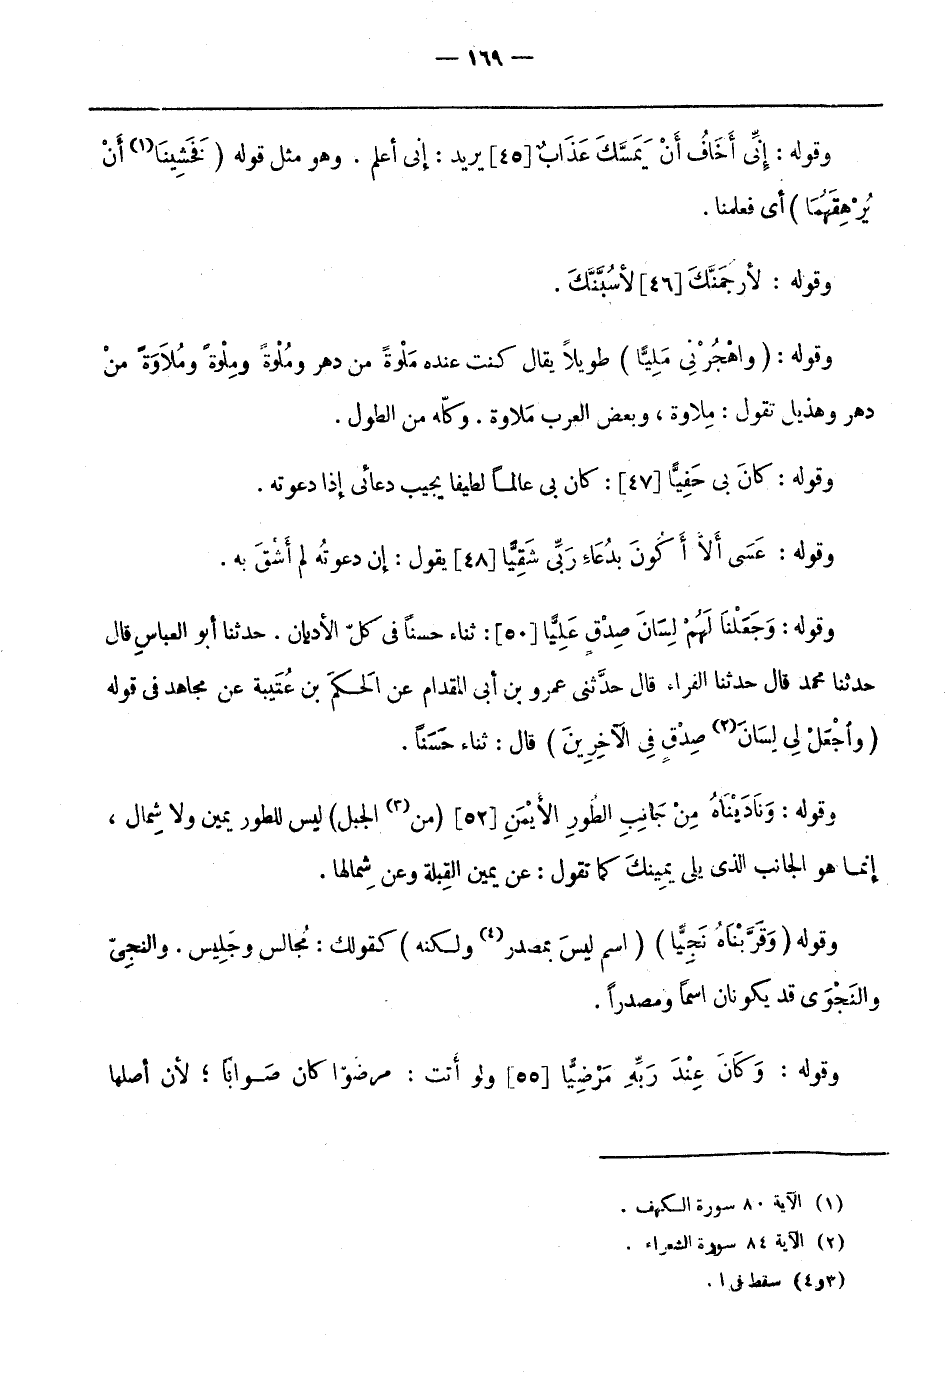 — ١٦٩ —
وقوله : إِنِّى أَخَافُ أَنْ يَمَسَّكَ عَذَابٌ [٤٥] يريد : إنى أعلم . وهو مثل قوله ( فَخَشِينَا(١) أَنْ
يُرْهِقَهُمَا ) أى فعلمنا .
وقوله : لأرجُمَنَّكَ [٤٦] لأسُبَّنَّكَ .
وقوله : ( واهْجُرْنِى مَلِيًّا ) طويلاً يقال كنت عنده مَلْوةً من دهر ومُلْوةً ومِلْوة ً ومُلاَوَة ً منْ
دهر وهذيل تقول : مِلاوة ، وبعض العرب مَلاوة . وكلّه من الطول .
وقوله : كانَ بى حَفِيًّا [٤٧] : كان بى عالمـاً لطيفا يجيب دعائى إذا دعوته .
وقوله : عَسَى أَلاَّ أَكُونَ بدُعَاءِ رَبِّى شَقِيًّا [٤٨] يقول : إن دعوتُه لم أَشْقَ به .
وقوله : وَجَعَلْنَا لَهُمْ لِسَانَ صِدْقٍ عَلِيًّا [٥٠] : ثناء حسناً فى كلّ الأديان . حدثنا أبو العباس قال
حدثنا محمد قال حدثنا الفراء قال حدَّثنى عمرو بن أبى المقدام عن الَحـكَم بن عُتَيبة عن مجاهد فى قوله
( وأجْعَلْ لِى لِسَانَ(٢) صِدْقٍ فِى الْآخِرِينَ ) قال : ثناء حَسَناً .
وقوله : وَنَادَيْنَاهُ مِنْ جَانِبِ الطُورِ الأَيْمَنِ [٥٢] (من(٣) الجبل) ليس للطور يمين ولا شِمال ،
إنمـا هو الجانب الذى يلى يمِينكَ كما تقول : عن يمين القِبلة وعن شِمالها .
وقوله ( وَقَرَّبْنَاهُ نَجِيًّا ) ( اسم ليسَ بمصدر(٤) ولـكنه ) كـقولك : مُجالس وجَلِيس . والنجِىّ
والنَجْوَى قد يكونان اسماً ومصدراً .
وقوله : وَكَانَ عِنْدَ رَبِّهِ مَرْضِيًّا [٥٥] ولو أتت : مرضوّا كان صَــوابًا ؛ لأن أصلها
(١) الآية ٨٠ سورة الـكهف .
(٢) الآية ٨٤ سورة الشعراء .
(٣و٤) سقط فى ا .